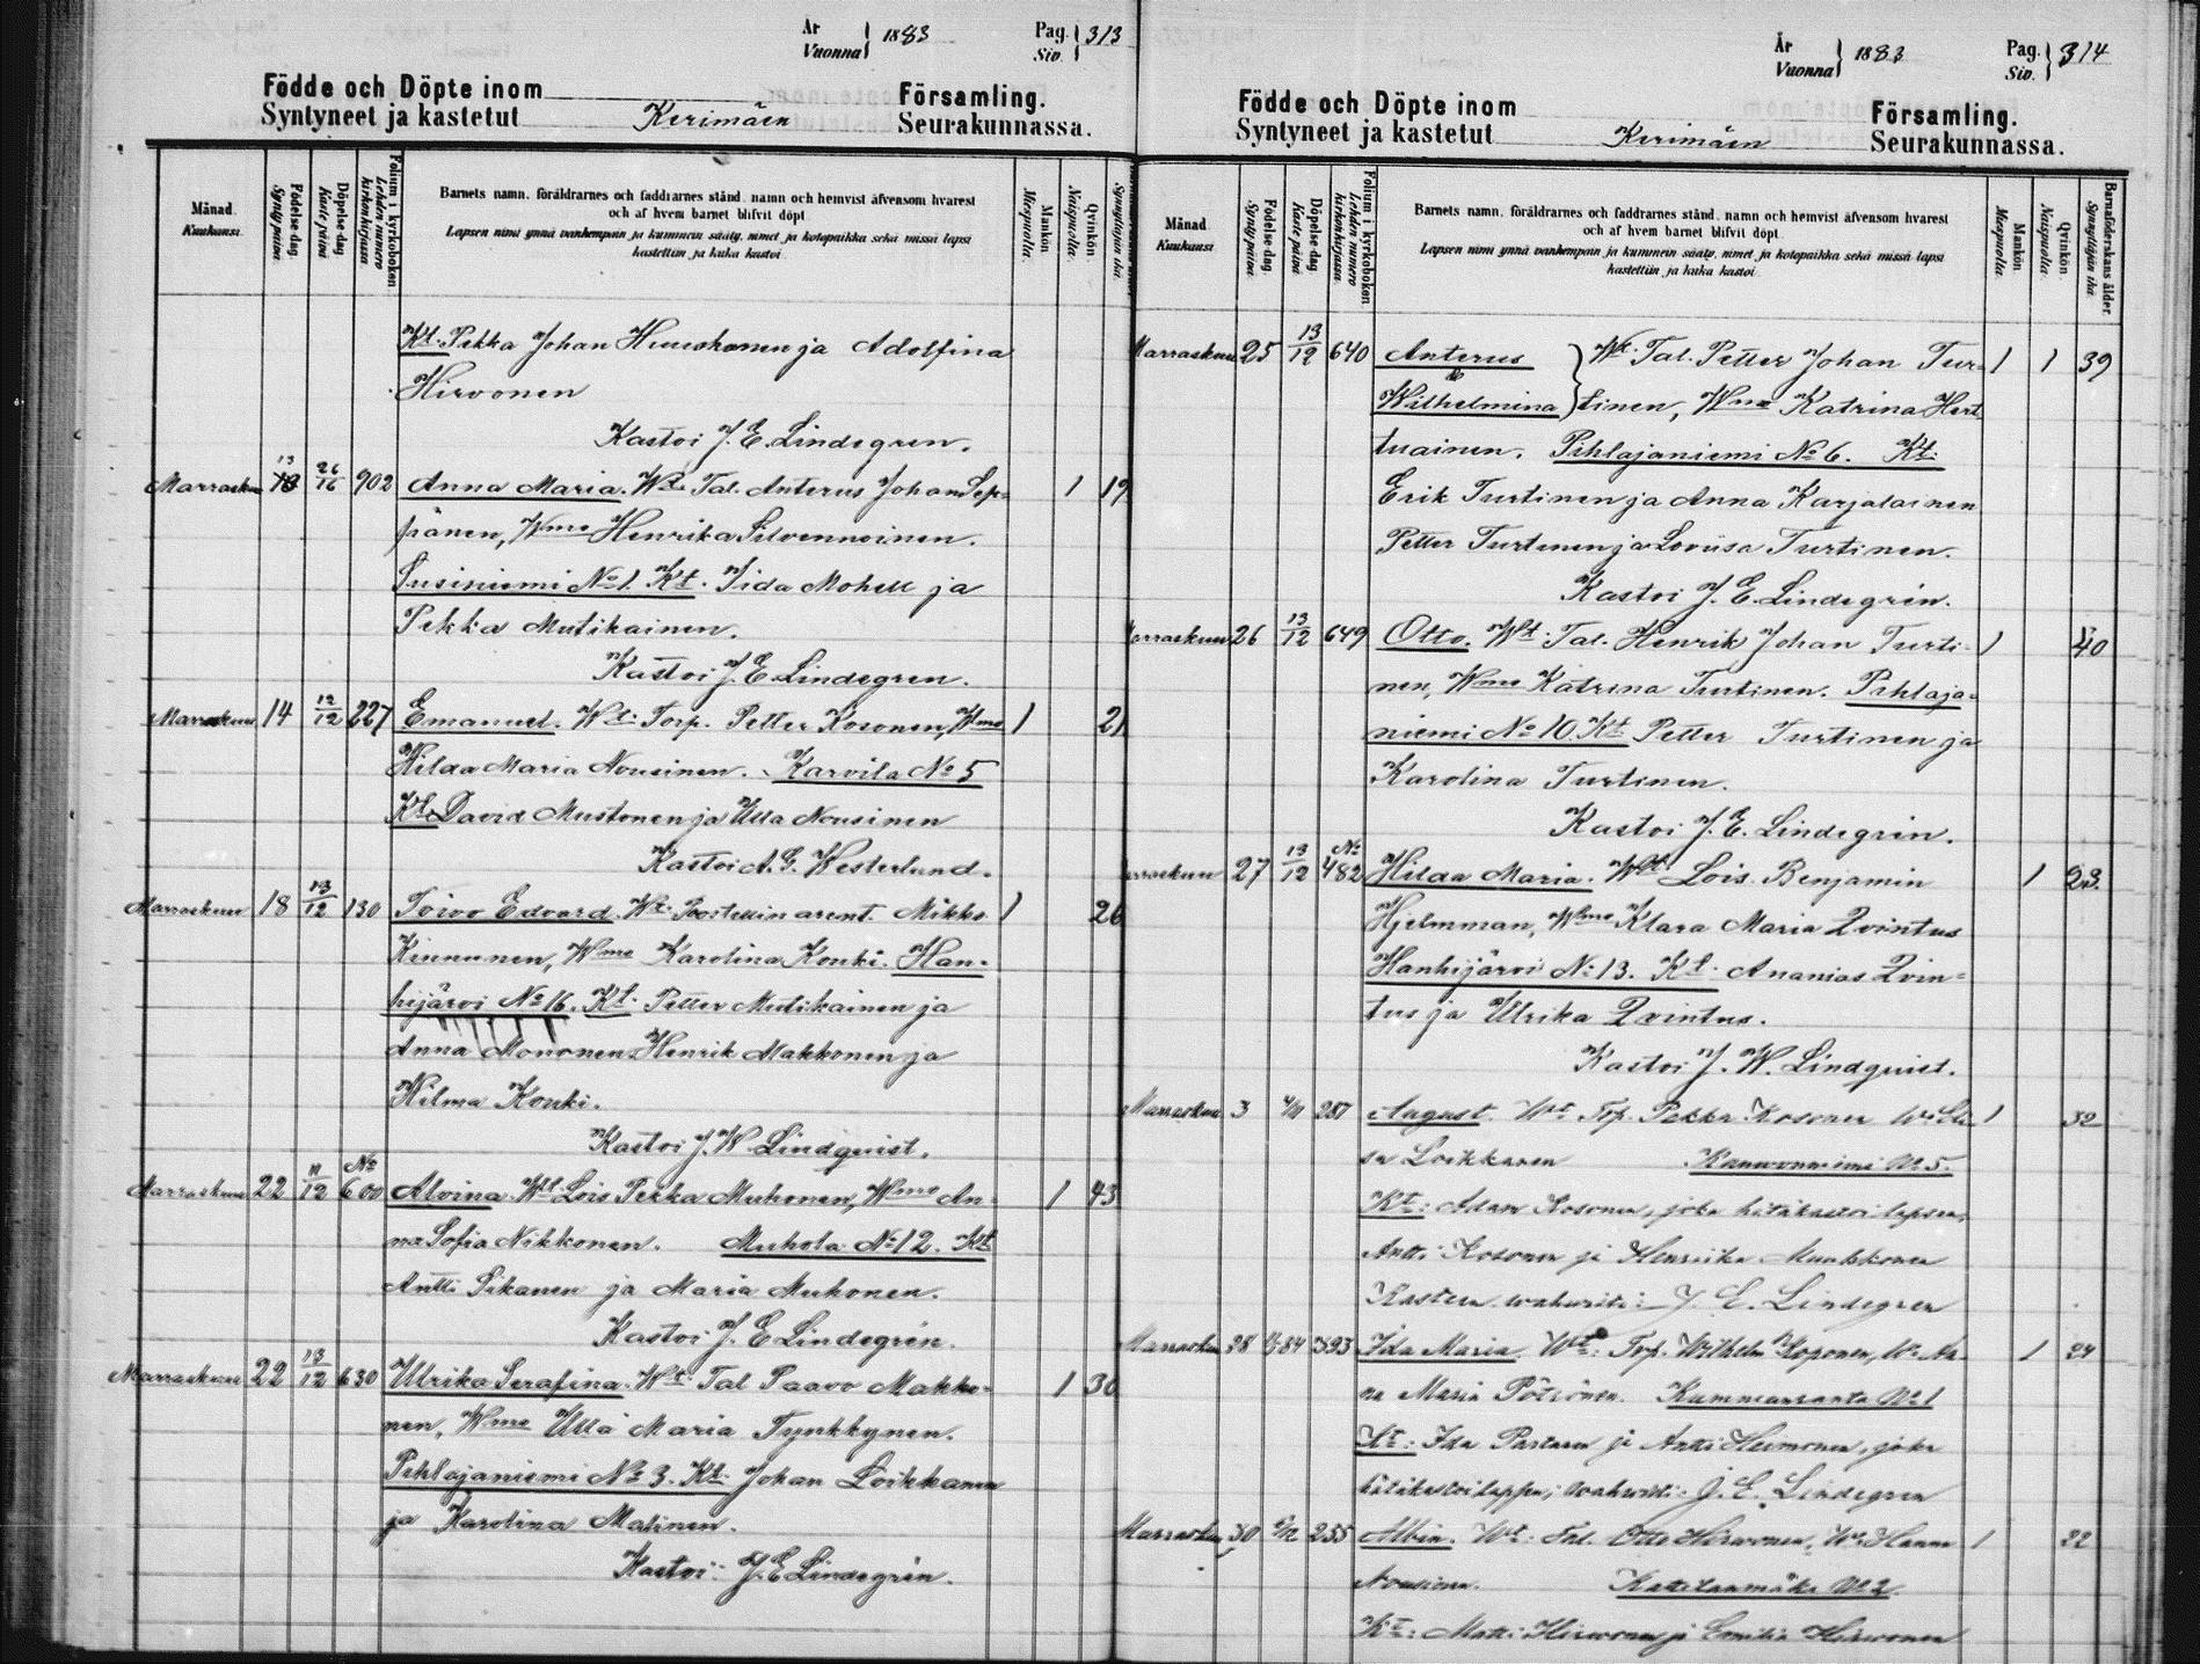 År Vuonna } 1883 Pag. Siv. } 313
Födde och Döpte inom Församling.
Syntyneet ja kastetut Kerimäen Seurakunnassa.
Månad. Kuukausi. Födelse dag. Synty päinä. Döpelse dag. Kaste päinä. Folium i kyrkoboken. Lehden numero kirkonkirjassa. Barnets namn, föräldrarnes och faddrarnes stånd, namn och hemvist äfvensom hvarest Mankön. Miespuolta. Qvinkön. Naispuolta. Synnyttäjän ikä.
och af hvem barnet blifvit döpt.
Lapsen nimi ynnä vanhempain ja kummein sääty, nimet ja kotopaikka sekä missä lapsi
kastettiin ja kuka kastoi.
Kt. Pekka Johan Huuskonen ja Adolfina
Hirvonen
Kastoi J. E. Lindegren.
Marraskuu 13 26/16 902 Anna Maria. Wt. Tal. Anterus Johan Sep- 1 19
pänen, Wmo Henrika Silvennoinen.
Susiniemi No 1. Kt. Iida Mohell ja
Pekka Mutikainen.
Kastoi J. E. Lindegren.
Marraskuu 14 12/12 227 Emanuel. Wt: Torp. Petter Kosonen, Wmo 1 21
Hilda Maria Nousinen. Karvila No 5
Kt. David Mustonen ja Ulla Nousinen
Kastoi A. G. Westerlund.
Marraskuu 18 13/12 130 Toivo Edvard. Wt. Bostellin arent. Mikko 1 26
Kinnunen, Wmo Karolina Konki. Han-
hijärvi No 16. Kt. Petter Mutikainen ja
Anna Mononen Henrik Makkonen ja
Hilma Konki.
Kastoi J. W. Lindquist.
Marraskuu 22 11/12 No 600 Alvina Wt. Lois Pekka Muhonen, Wmo An- 1 43
na Sofia Nikkonen. Muhola No 12. Kt
Antti Sikanen ja Maria Muhonen.
Kastoi J. E. Lindegrén.
Marraskuu 22 13/12 630 Ulrika Serafina. Wt. Tal. Paavo Makko- 1 30
nen, Wmo Ulla Maria Tynkkynen.
Pihlajaniemi No 3. Kt. Johan Loikkanen
ja Karolina Malinen.
Kastoi: J. E. Lindegrén.
År Vuonna } 1883 Pag. Siv. } 314
Födde och Döpte inom Församling.
Syntyneet ja kastetut Kerimäen Seurakunnassa.
Månad. Kuukausi. Födelse dag. Synty päinä. Döpelse dag. Kaste päinä. Folium i kyrkoboken. Lehden numero kirkonkirjassa. Barnets namn, föräldrarnes och faddrarnes stånd, namn och hemvist äfvensom hvarest Mankön. Miespuolta. Qvinkön. Naispuolta. Barnaföderskans ålder. Synnyttäjän ikä.
och af hvem barnet blifvit döpt.
Lapsen nimi ynnä vanhempain ja kummein sääty, nimet ja kotopaikka sekä missä lapsi
kastettiin ja kuka kastoi.
Marraskuu 25 13/12 640 Anterus } Wt. Tal. Petter Johan Tur- 1 1 39
Wilhelmina } tinen, Wmo Katrina Hert
tuainen. Pihlajaniemi No 6. Kt.
Erik Turtinen ja Anna Karjalainen
Petter Turtinen ja Loviisa Turtinen.
Kastoi J. E. Lindegrén.
Marraskuu 26 13/12 649 Otto. Wt: Tal. Henrik Johan Turti- 1 40
nen, Wmo Katrina Turtinen. Pihlaja-
niemi No 10. Kt. Petter Turtinen ja
Karolina Turtinen.
Kastoi J. E. Lindegrén.
Marraskuu 27 13/12 No 482 Hilda Maria. Wt. Lois. Benjamin 1 23.
Hjelmman, Wmo Klara Maria Qvintus
Hanhijärvi No 13. Kt. Ananias Qvin-
tus ja Ulrika Qvintus.
Kastoi J. W. Lindquist.
Marraskuu 3 4/11 287 August. Wt Trp. Pekka Kosonen Wo 1 32
sa Loikkanen No 5.
Kt: Adam Kosonen, joka hätäkastoi lapsen,
Antti Kosonen ja Henriika
Kasteen wahwisti: J. E. Lindegren
Marraskuu 28 84 393 Ida Maria. Wt: Trp. Wilhelm Koponen, Wo An- 1 24
na Maria Pöyhönen. Kummanranta No 1
Kt: Ida Partanen ja Antti Heimonen, joka
hätäkastoi lapsen; wahwisti: J. E. Lindegren
Marraskuu 30 255 Albin. Wt: Tal. Otto Hirwonen, Wo Hanna 1 22
Nousinen. Kattilanmäki No 2.
Kt: Matti Hirwonen ja Emilia Hirwonen